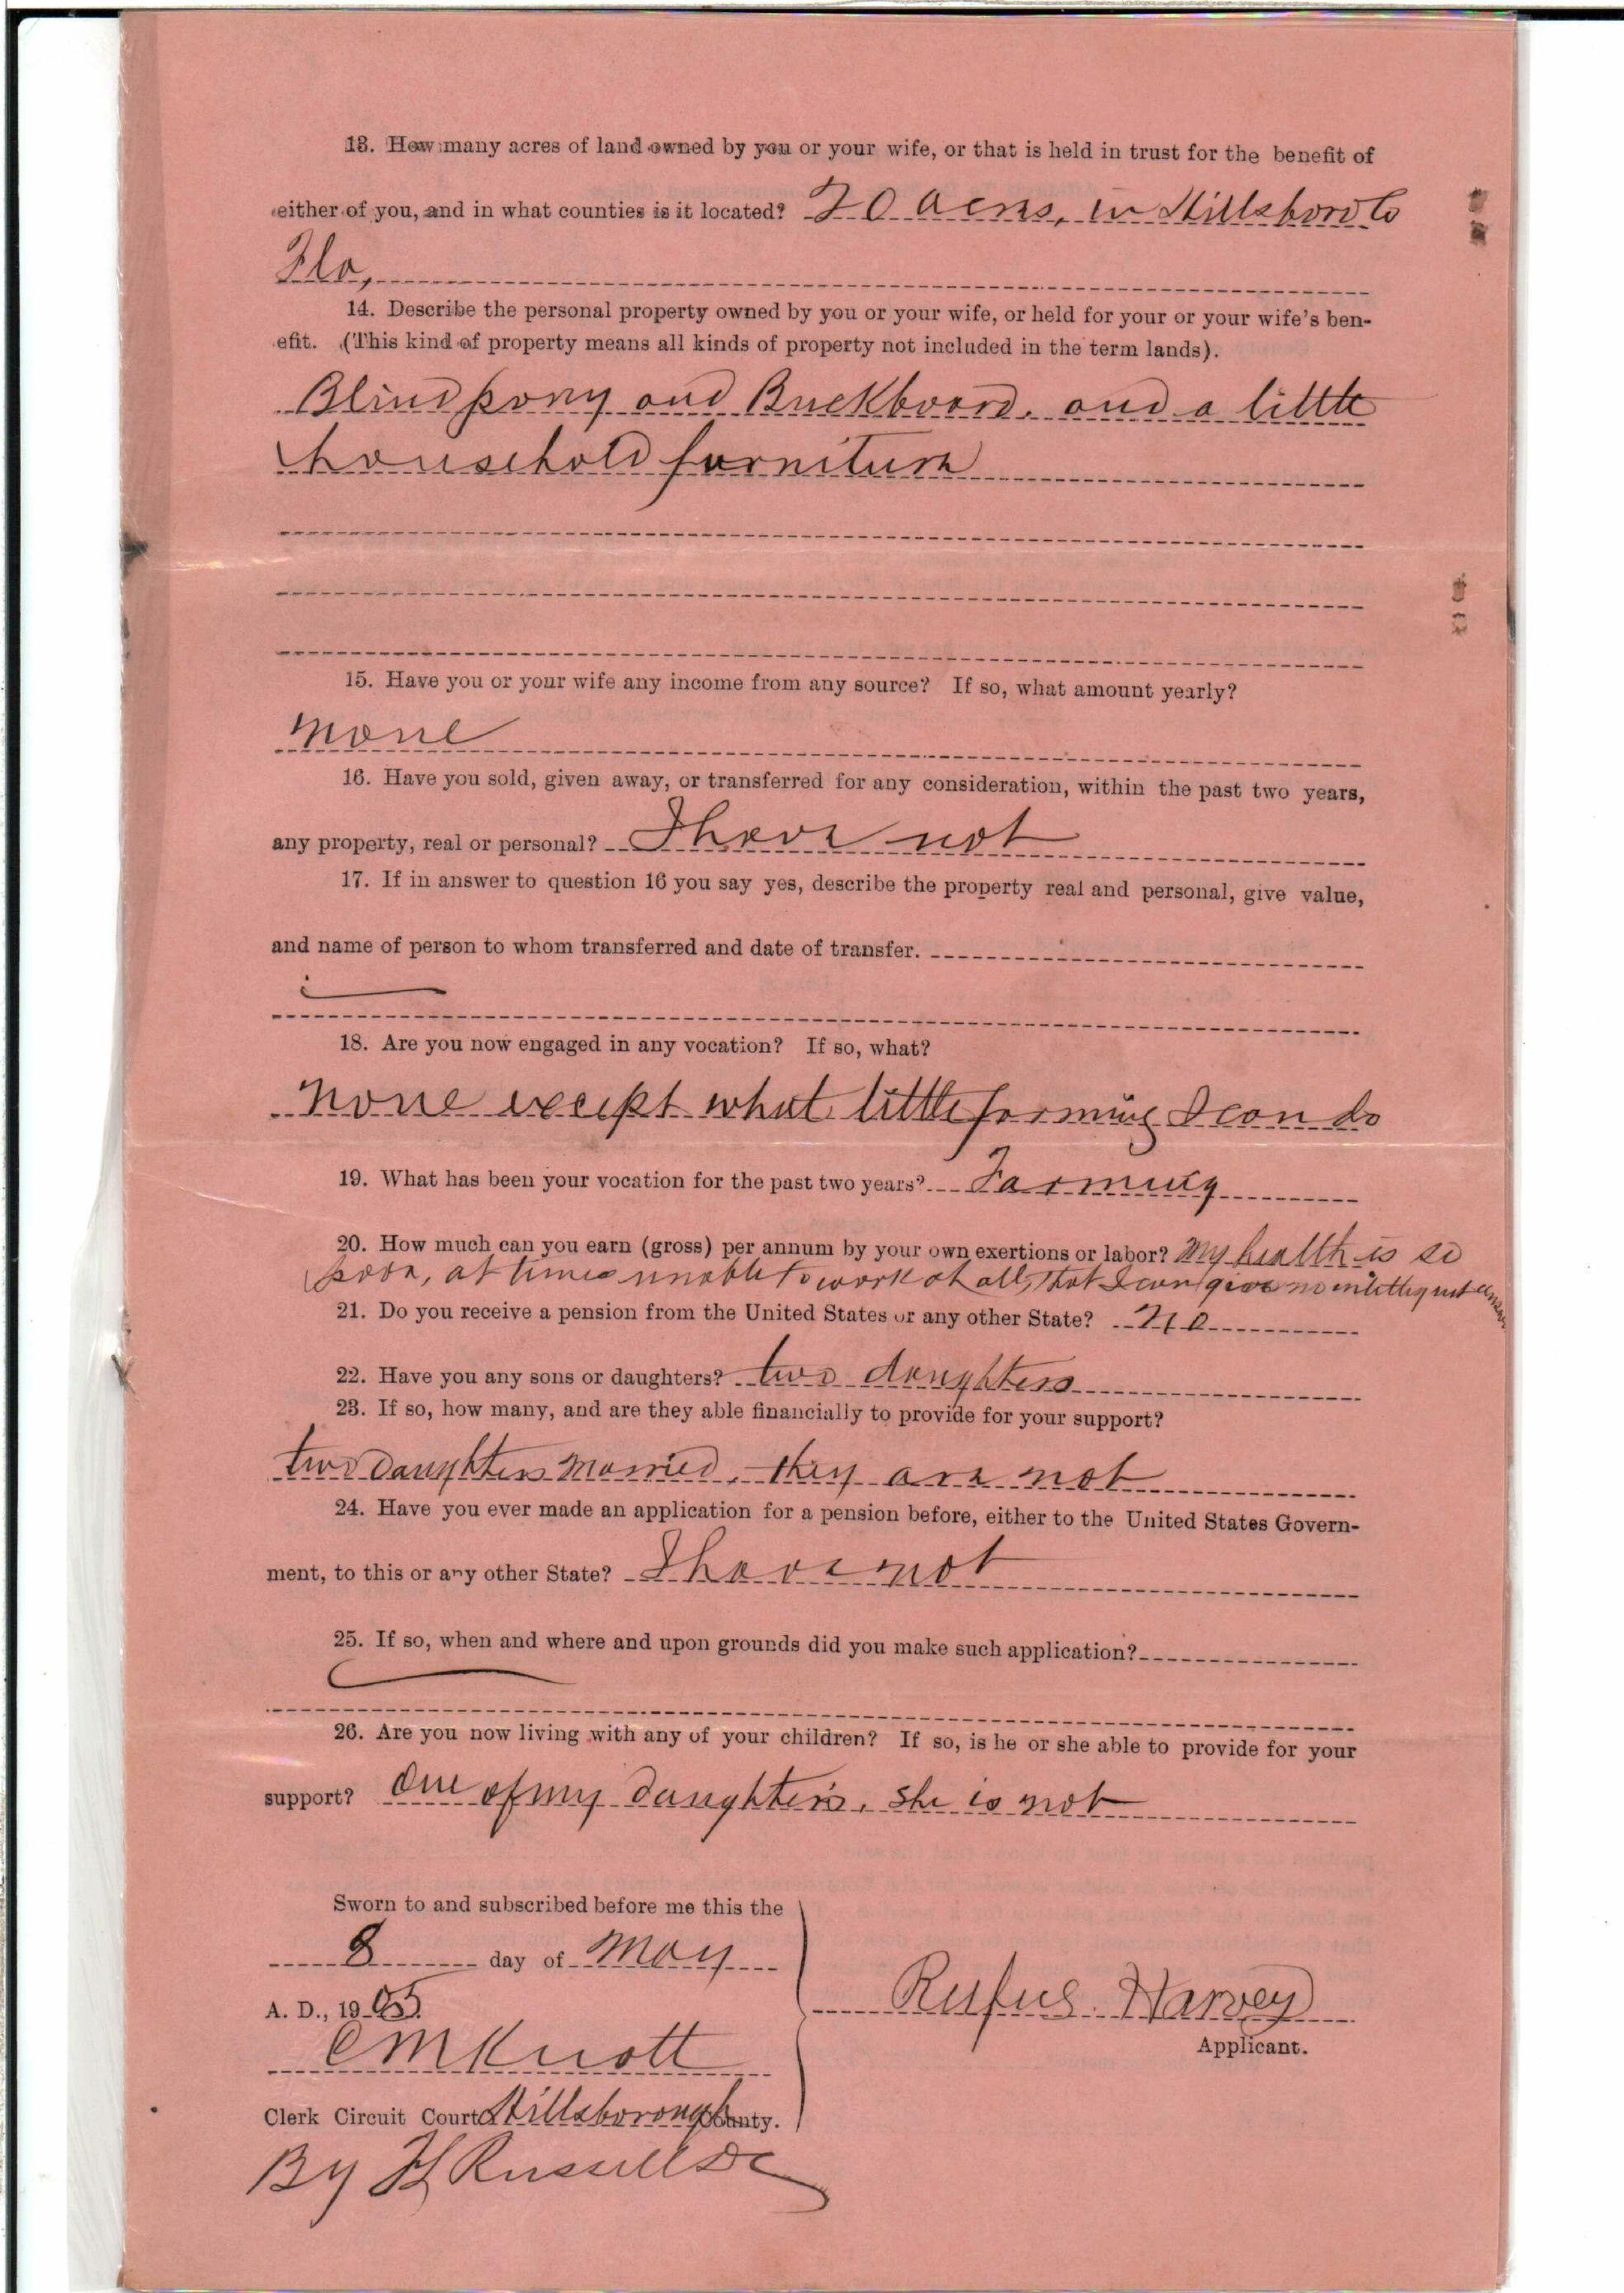 13. How many acres of land owned by you or your wife, or that is held in trust for the benefit of
either of you, and in what counties is it located? 20 Acres, in Hillsboro Co
Fla,
14. Describe the personal property owned by you or your wife, or held for your or your wife's ben-
efit. (This kind of property means all kinds of property not included in the term lands).
Blind pony and Buckboard. and a little
household furniture
15. Have you or your wife any income from any source? If so, what amount yearly?
none
16. Have you sold, given away, or transferred for any consideration, within the past two years,
any property, real or personal? I have not
17. If in answer to question 16 you say yes, describe the property real and personal, give value,
and name of person to whom transferred and date of transfer.
18. Are you now engaged in any vocation? If so, what?
none except what little farming I can do
19. What has been your vocation for the past two years? Farming
20. How much can you earn (gross) per annum by your own exertions or labor? My health is so
poor, at times unable to work at all, that I can give no
21. Do you receive a pension from the United States or any other State? No
22. Have you any sons or daughters? two daughters
23. If so, how many, and are they able financially to provide for your support?
two daughters married, they are not
24. Have you ever made an application for a pension before, either to the United States Govern-
ment, to this or any other State? I have not
25. If so, when and where and upon grounds did you make such application?
26. Are you now living with any of your children? If so, is he or she able to provide for your
support? One of my daughters, she is not
Sworn to and subscribed before me this the
8 day of May
A. D., 1905.
C M Knott
Clerk Circuit Court Hillsborough County.
By H L Russell DC
Rufus Harvey
Applicant.